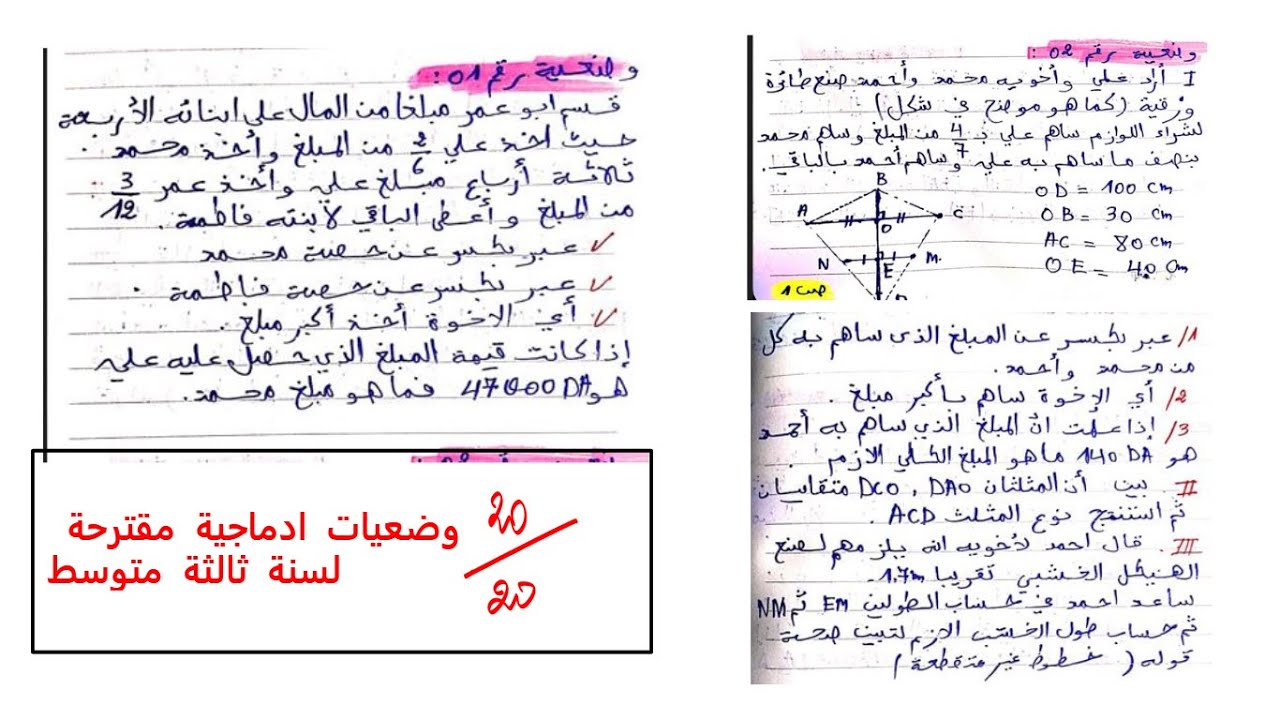 وضعية رقم 01 :
قسم ابو عمر مبلغا من المال على ابنائه الأربعة
حيث اخذ علي 2/6 من المبلغ وأخذ محمد
ثلاثة أرباع مبلغ علي وأخذ عمر 3/12
من المبلغ وأعطى الباقي لابنته فاطمة .
✓ عبر بكسر عن حصة محمد
✓ عبر بكسر عن حصة فاطمة .
✓ أي الاخوة أخذ أكبر مبلغ .
إذا كانت قيمة المبلغ الذي حصل عليه علي
هو 47000 DA فما هو مبلغ محمد .
وضعيات ادماجية مقترحة
لسنة ثالثة متوسط
20/20
وضعية رقم 02 :
I أراد علي وأخويه محمد وأحمد صنع طائرة
ورقية (كما هو موضح في شكل)
لشراء اللوازم ساهم علي بـ 4/7 من المبلغ وساهم محمد
بنصف ما ساهم به علي وساهم أحمد بالباقي .
B
A
O
C
N
E
M
D
OD = 100 cm
OB = 30 cm
AC = 80 cm
OE = 40 cm
صـ 1
1/ عبر بكسر عن المبلغ الذي ساهم به كل
من محمد وأحمد .
2/ أي الإخوة ساهم بأكبر مبلغ .
3/ إذا علمت انّ المبلغ الذي ساهم به أحمد
هو 140 DA ما هو المبلغ الكلي الازم .
II . بين أن المثلثان DCO , DAO متقايسان
ثم استنتج نوع المثلث ACD .
III . قال احمد لأخويه انه يلزمهم لصنع
الهيكل الخشبي تقريبا 1.7m .
ساعد احمد في حساب الطولين EM ثم NM
ثم حساب طول الخشب الازم لتبين صحة
قوله ( خطوط غير متقطعة )